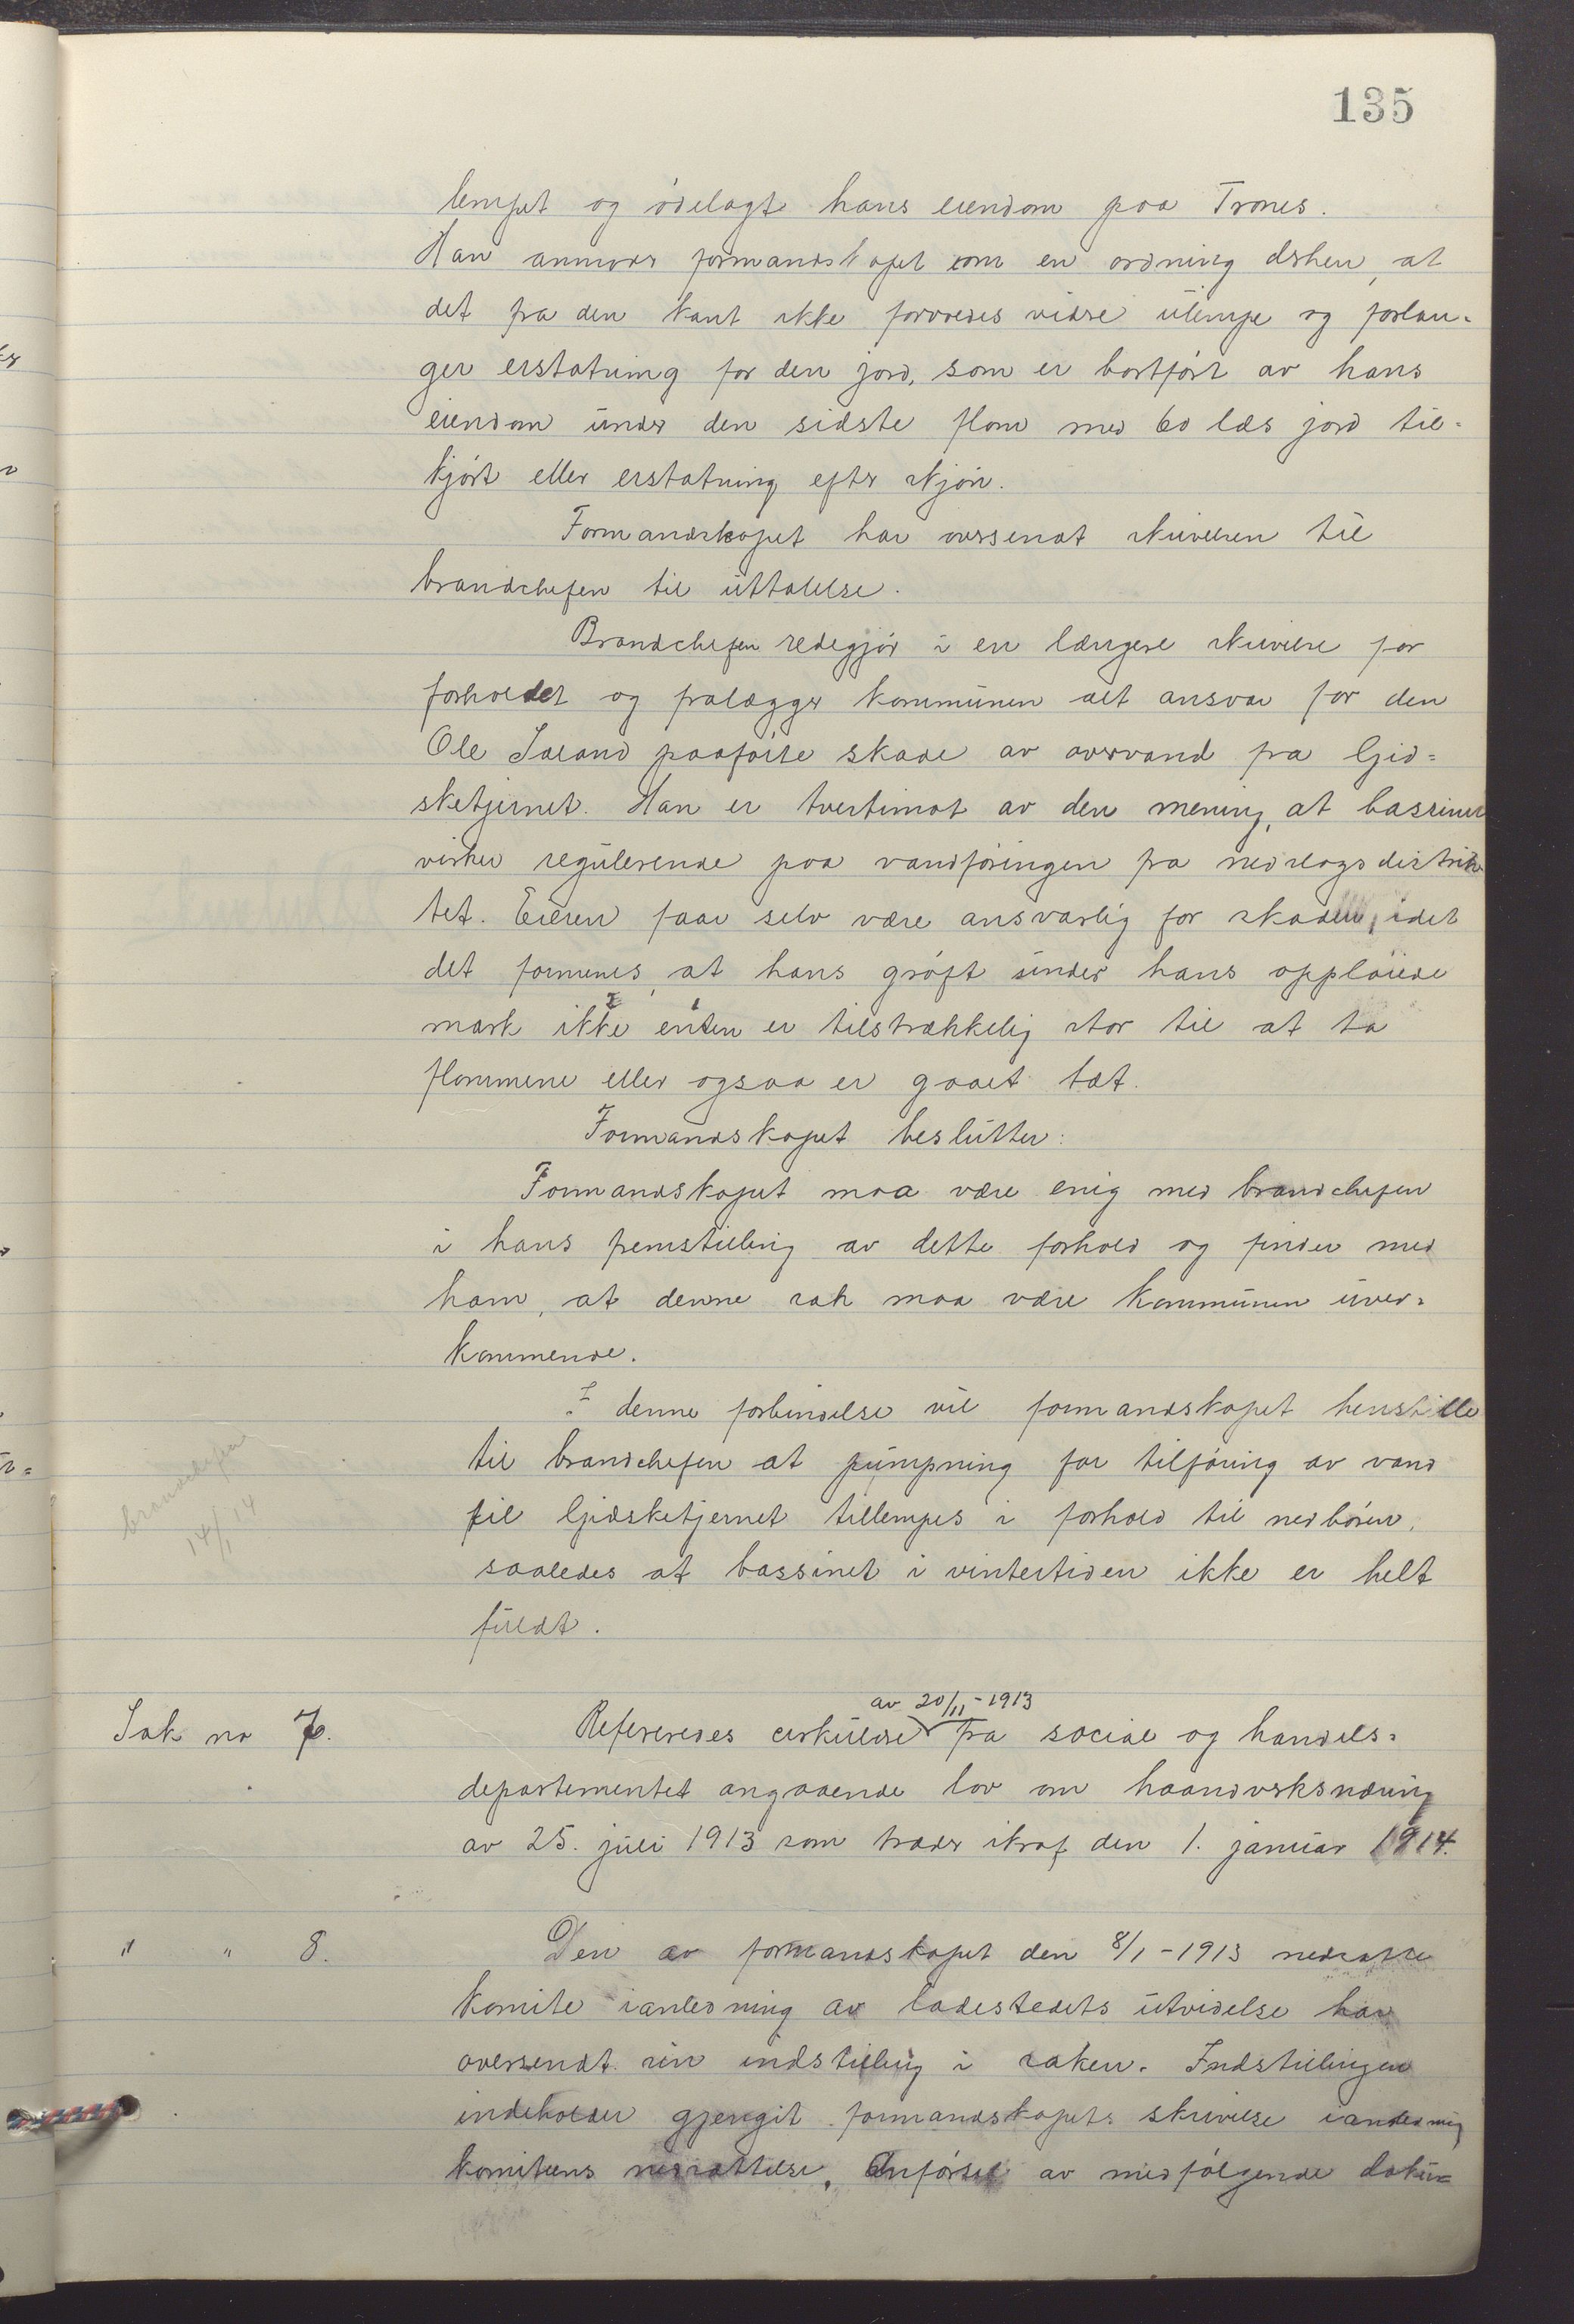 135
lempet og ödelagt hans eiendom paa Trones.
Han anmoder formandskapet om en ordning derhen, at
det fra den kant ikke forvoldes videre ulempe og forlan-
ger erstatning for den jord, som er bortført av hans
eiendom under den sidste flom med 60 læs jord til-
kjørt eller erstatning efter skjøn.
Formandskapet har oversendt skrivelsen til
brandchefen til uttalelse.
Brandchefen redegjør i en længere skrivelse for
forholdet og fralægger kommunen alt ansvar for den
Ole Saland paaførte skade av overvand fra Gjid-
sketjernet. Han er tvertimot av den mening, at bassinet
virker regulerende paa vandføringen fra nedslagsdistrik
tet. Eieren faar selv være ansvarlig for skaden, idet
det formenes, at hans grøft under hans opplöiede
mark ikke enten er tilstrækkelig stor til at ta
flommene eller ogsaa er gaaet tæt.
Formandskapet beslutter:
Formandskapet maa være enig med brandchefen
i hans fremstilling av dette forhold og finder med
ham, at denne sak maa være kommunen uved-
kommende.
I denne forbindelse vil formandskapet henstille
til brandchefen at pumpning for tilføring av vand
til Gjidsketjernet tillempes i forhold til nedbøren,
saaledes at bassinet i vintertiden ikke er helt
fuldt.
brandchefen
14/1 14
av 20/11-1913
Sak no 7. Refereredes cirkulære fra social og handels-
departementet angaaende lov om haandverksnæring
av 25. juli 1913 som træder ikraf den 1. januar 1914.
" " 8. Den av formandskapet den 8/1-1913 nedsatte
komite i anledning av ladestedets utvidelse har
oversendt sin indstilling i saken. Indstillingen
indeholder gjengit formandskapets skrivelse i anledning
komiteens nedsættelse, anførsel av medfølgende doku-